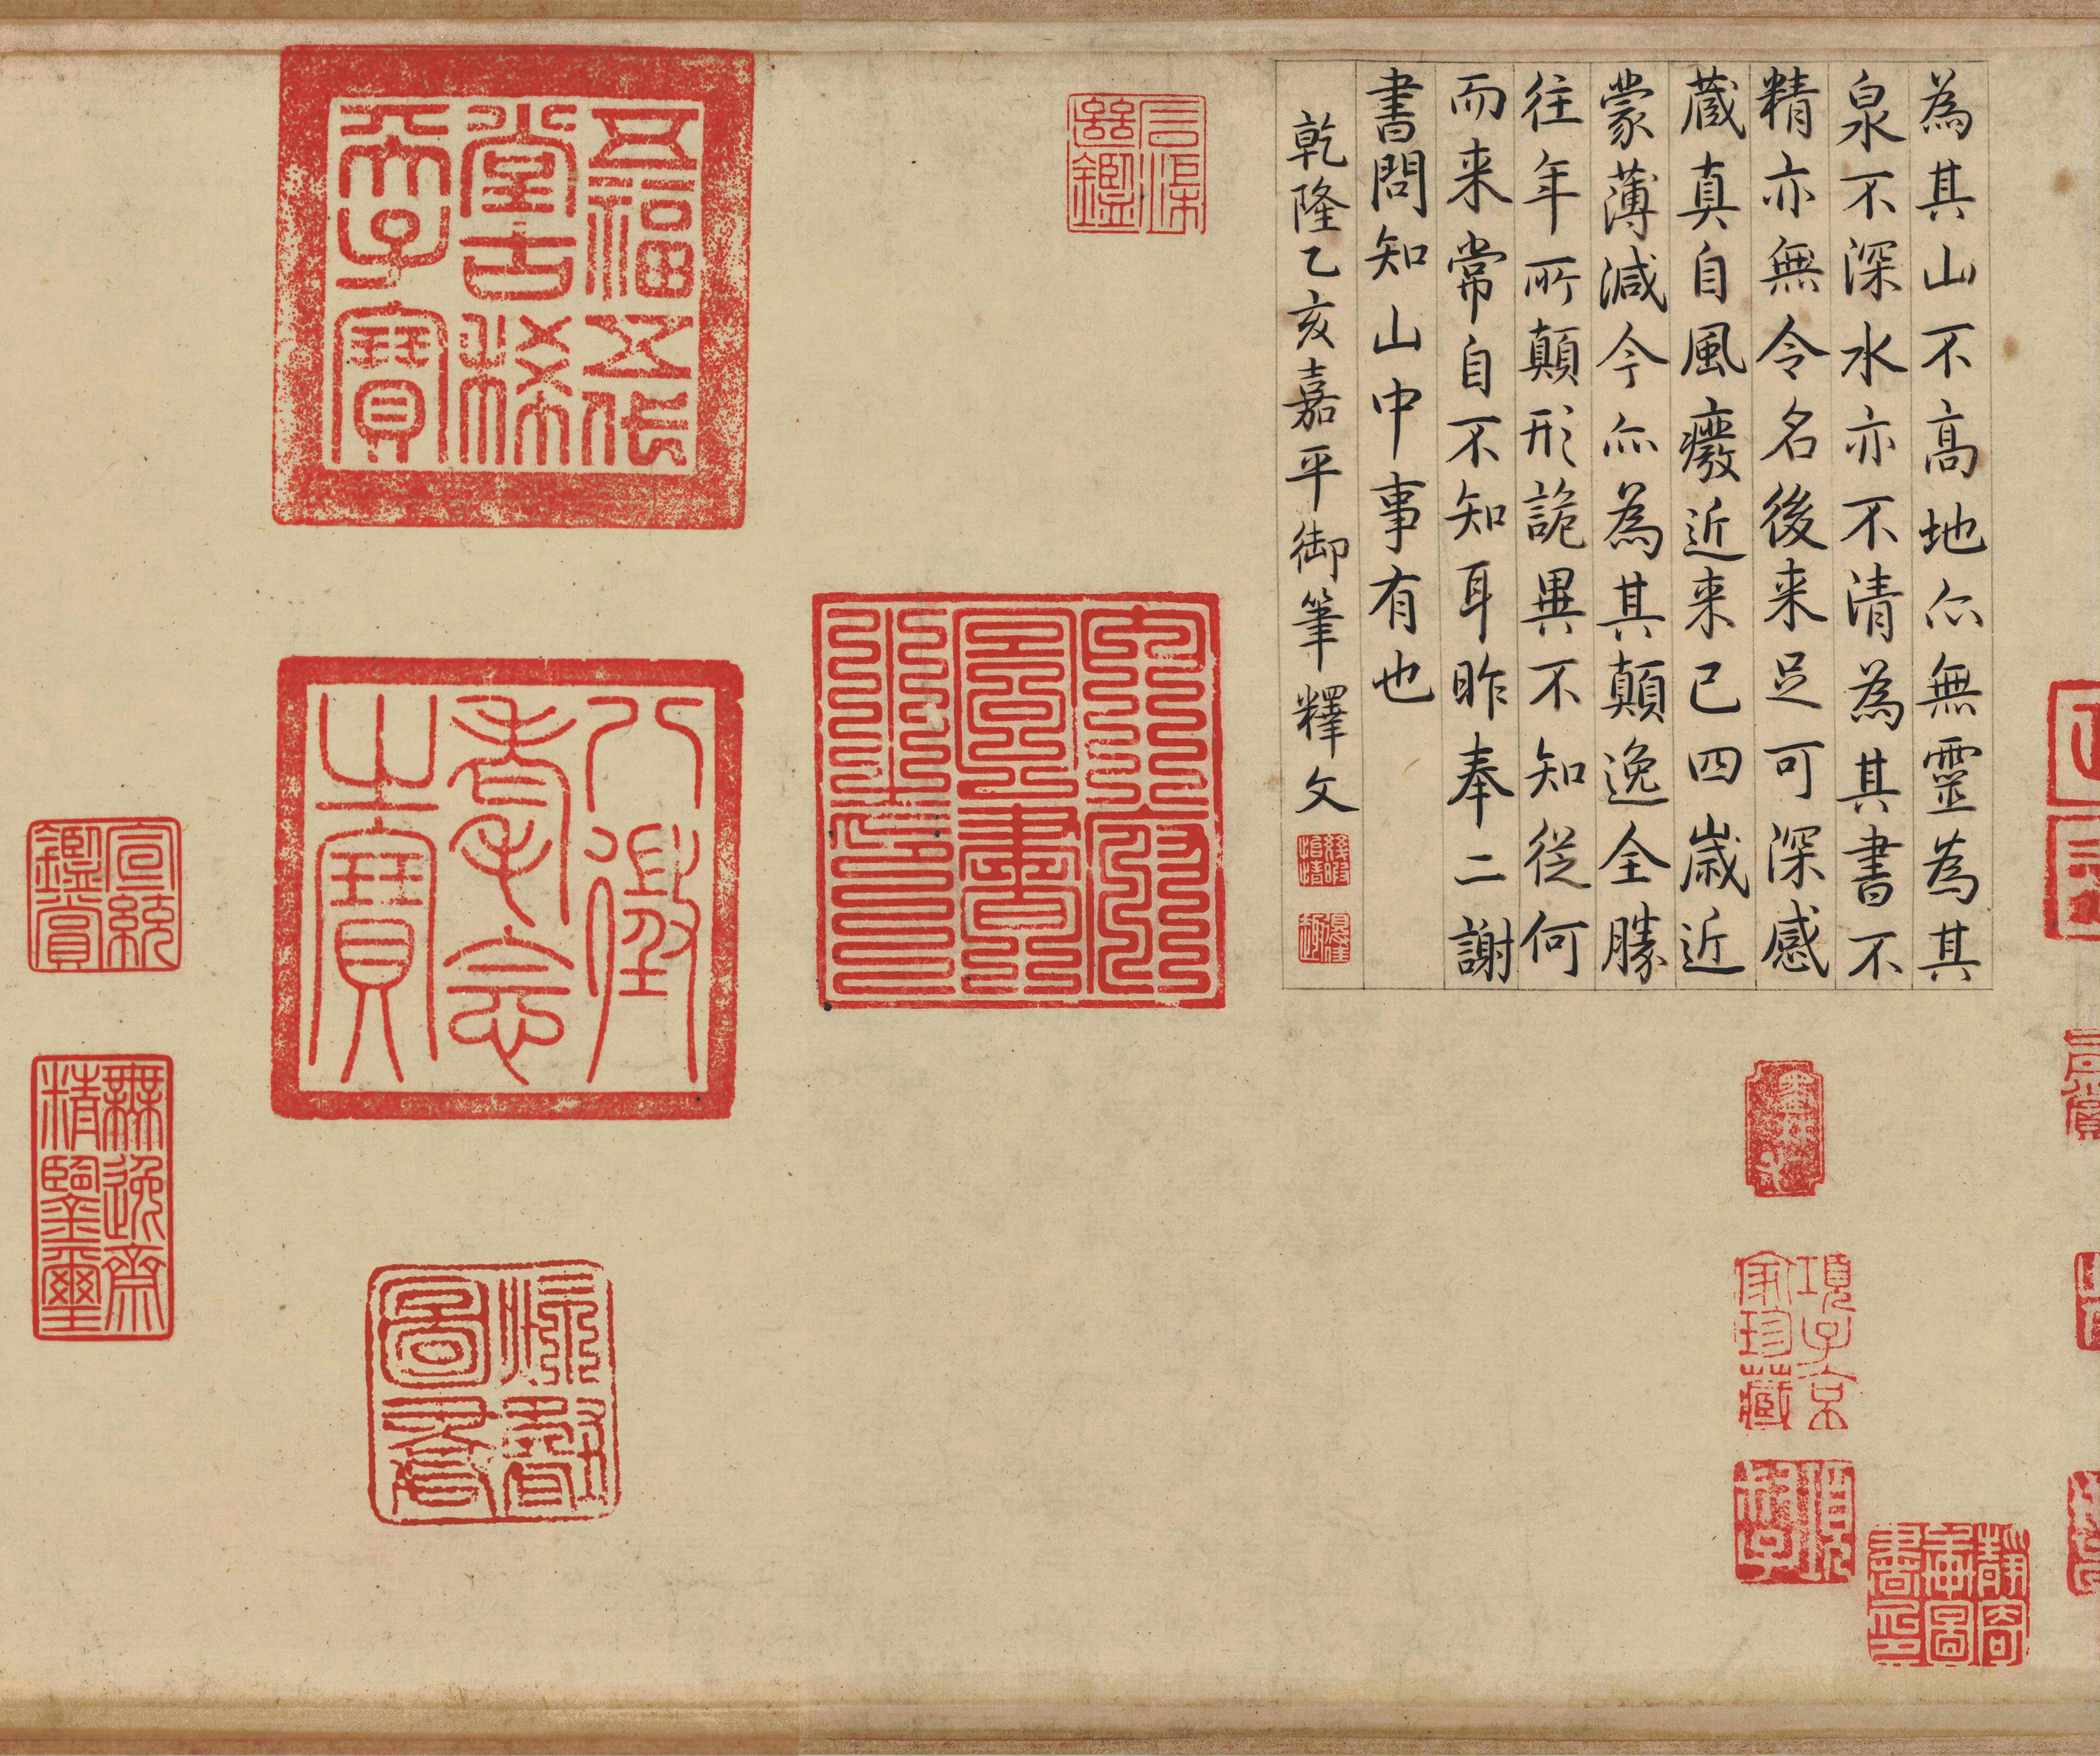 為其山不高地亦無靈為其
泉不深水亦不清為其書不
精亦無令名後来足可深感
蔵真自風癈近来已四歳近
蒙薄減今亦為其顛逸全勝
往年所顛形詭異不知從何
而来常自不知耳昨奉二謝
書問知山中事有也
乾隆乙亥嘉平御筆釋文
五福五代
堂古稀
天子寶
八徵
耄念
之寶
宣統
鑑賞
無逸齋
精鑒璽
項子京
家珍藏
靜寄
圖書